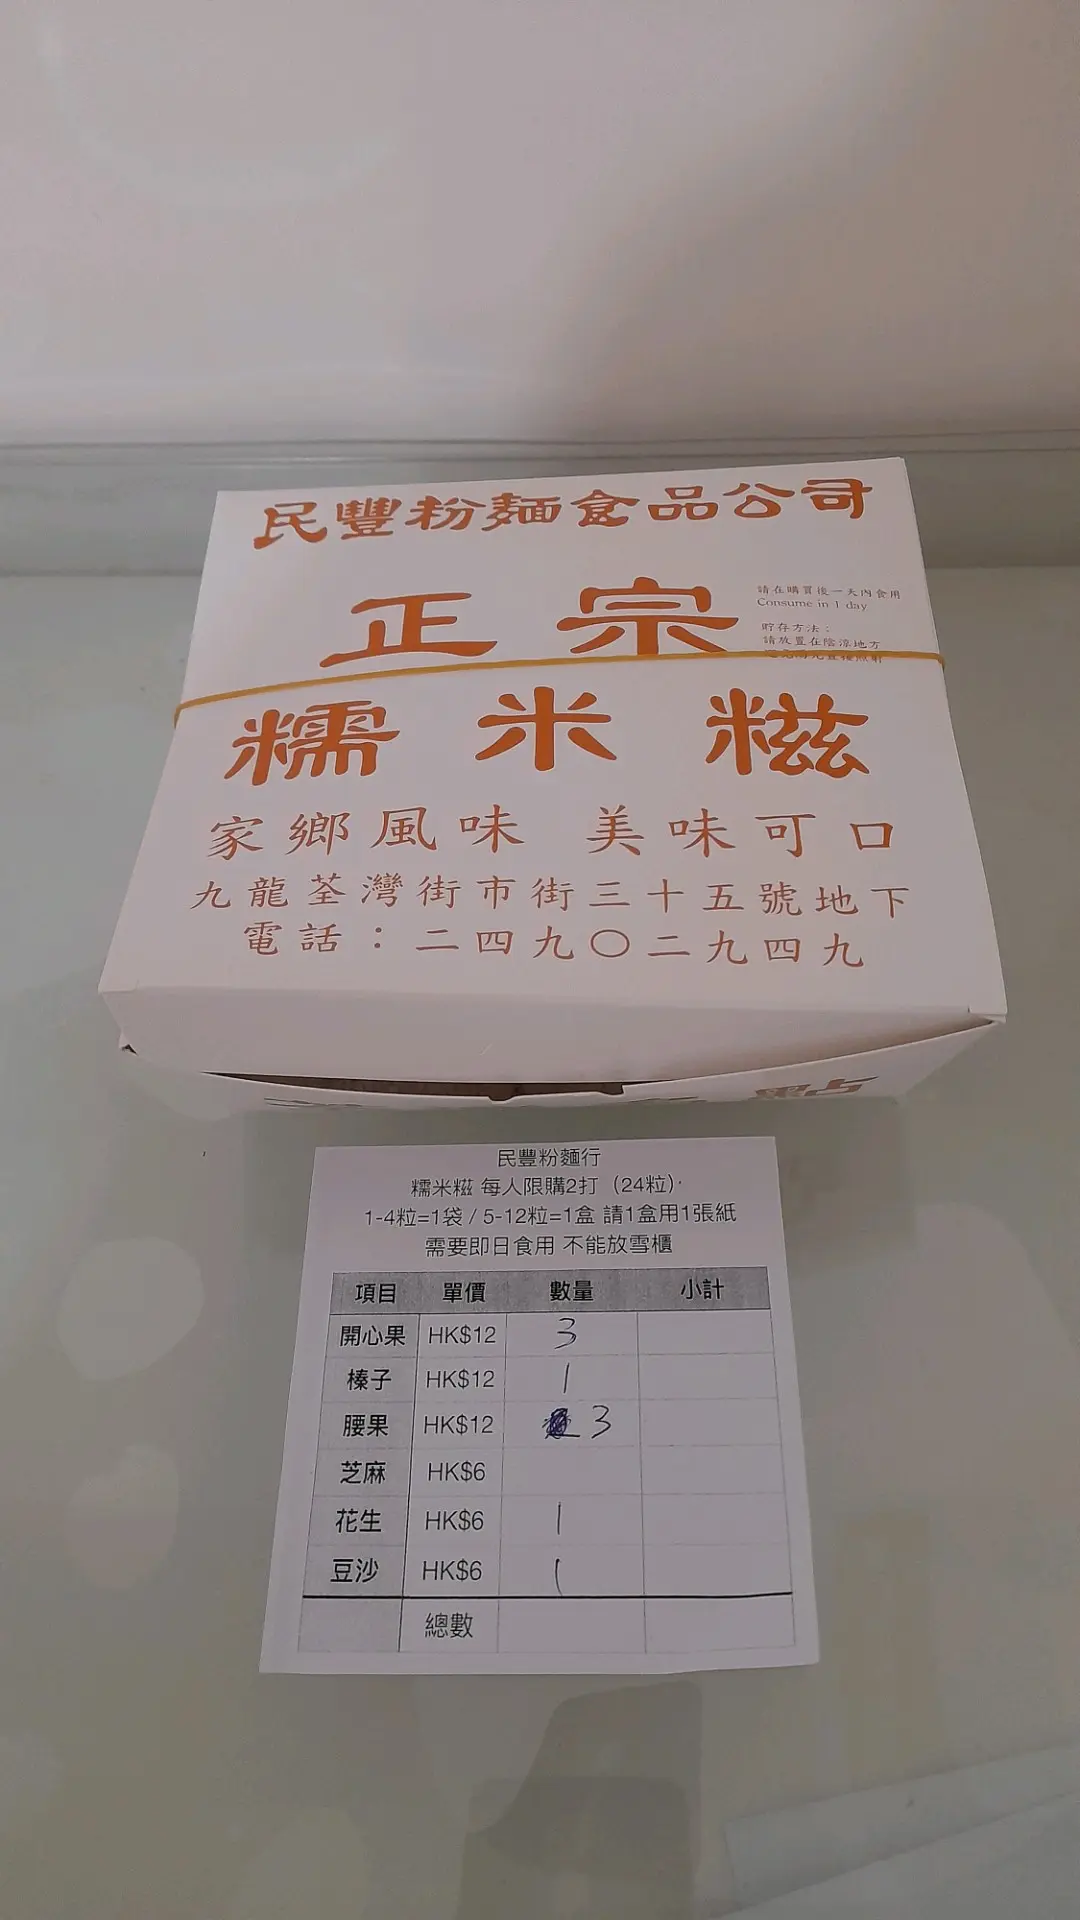 民豐粉麵食品公司
正宗
請在購買後一天內食用
Consume in 1 day
貯存方法：
請放置在陰涼地方
糯米糍
家鄉風味 美味可口
九龍荃灣街市街三十五號地下
電話：二四九〇二九四九
點
民豐粉麵行
糯米糍 每人限購2打（24粒）
1-4粒=1袋 / 5-12粒=1盒 請1盒用1張紙
需要即日食用 不能放雪櫃
項目 單價 數量 小計
開心果 HK$12 3
榛子 HK$12 1
腰果 HK$12 3
芝麻 HK$6
花生 HK$6 1
豆沙 HK$6 1
總數